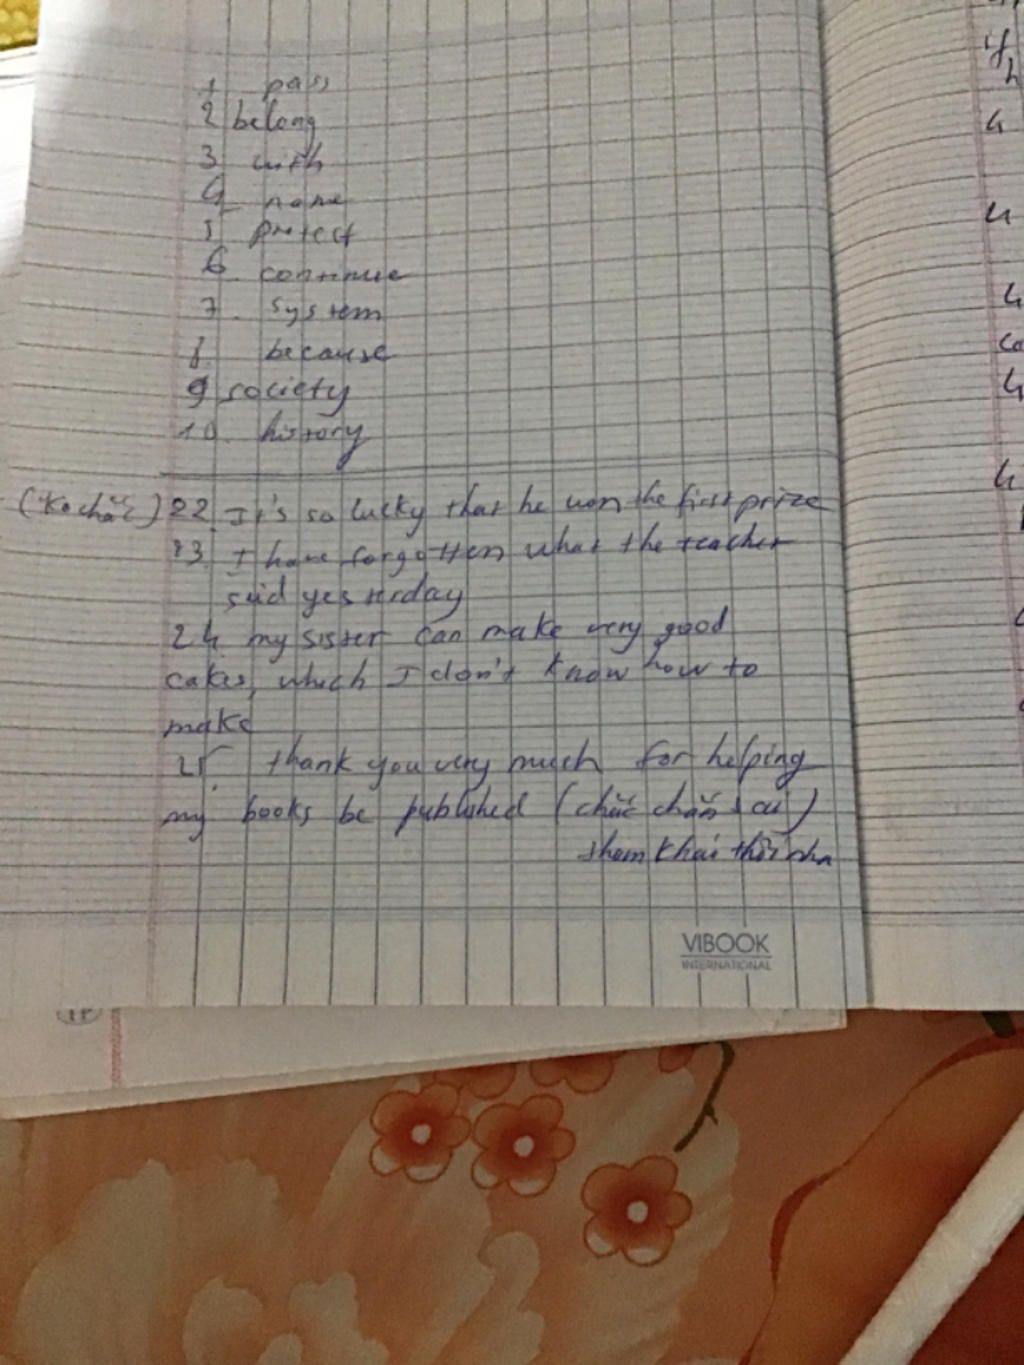 1 pass
2 belong
3 with
4 name
5 protect
6 continue
7. system
8. because
9 society
10. history
(Ko chắc) 22. It's so lucky that he won the first prize
23. I have forgotten what the teacher
said yesterday
24 my sister can make very good
cakes, which I don't know how to
make
25. thank you very much for helping
my books be published (chắc chắn sai)
tham khảo thôi nha
VIBOOK
INTERNATIONAL
if
h
4
4
4
co
4
4